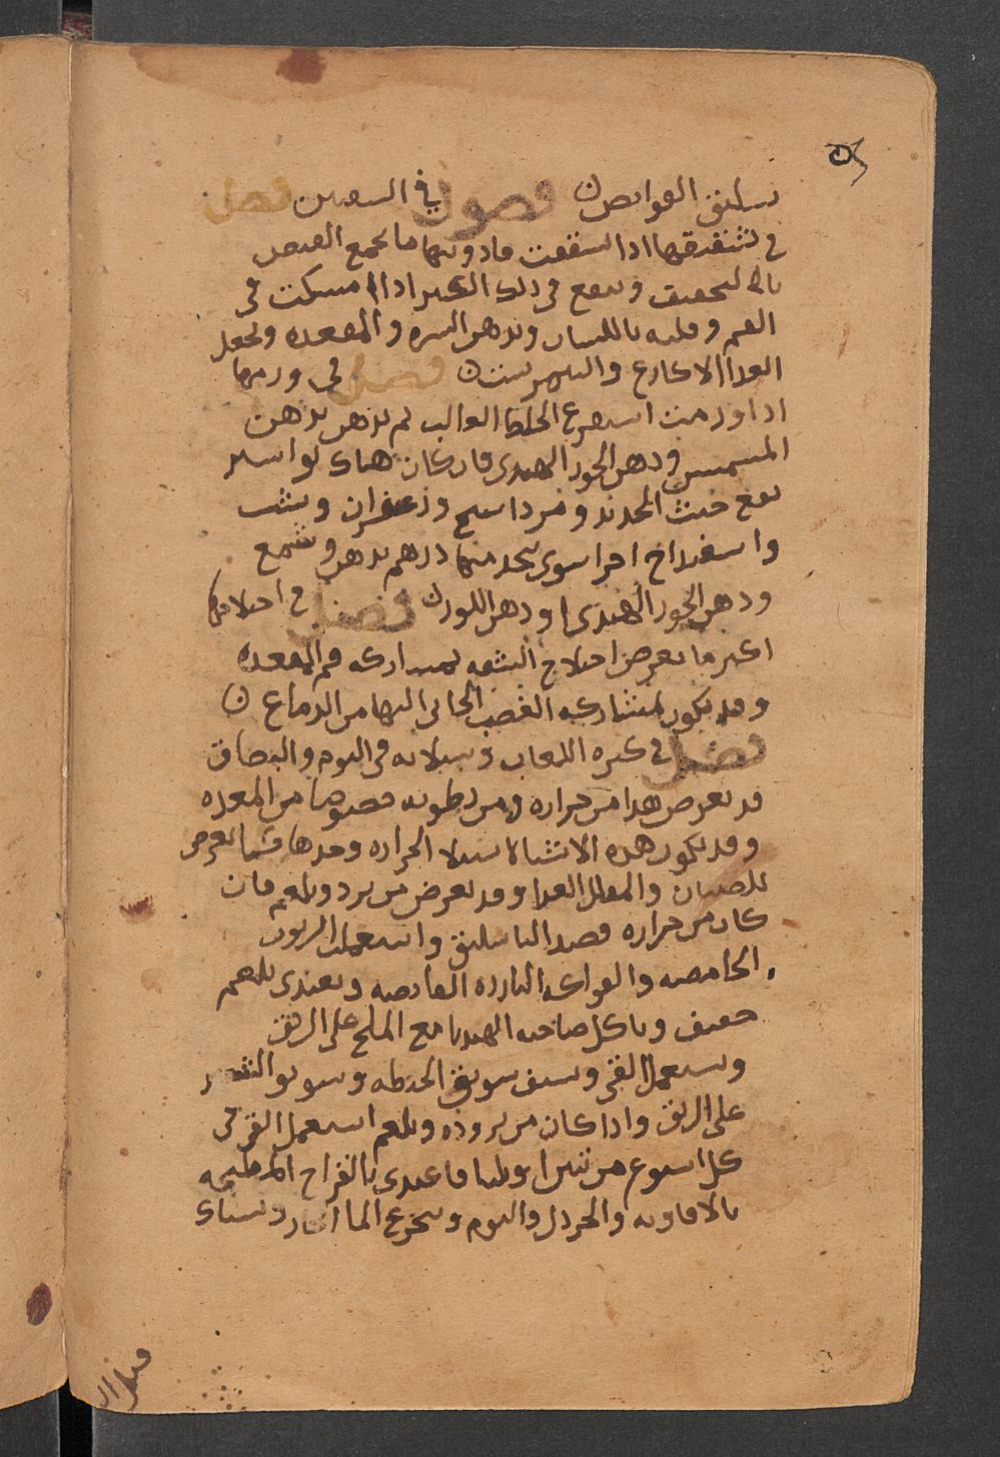 بسليق القوابض ن فصول في الشفتين فصل
في تشققها اذا تشققت فادويتها ما يجمع القبض
الى التجفيف وينفع في ذلك الكثيرا اذا امسكت في
الفم وقلبه باللسان وتدهن السره والمقعده وتجعل
الغذا الاكارع والنيمرشت ن فصل في ورمها
اذا ورمت استفرغ الخلط الغالب ثم تدهن بدهن
المشمش ودهن الجوز الهندي فان كان هناك بواسير
نفع خبث الحديد ومرداسنج وزعفران وشب
واسفيداج اجزا سوى يتخذ منها درهم بدهن وشمع
ودهن الجوز الهندي او دهن اللوز ن فصل في اختلاجها
اكثر ما يعرض اختلاج الشفه لمشاركه فم المعده
وقد يكون لمشاركه العصب الجائي اليها من الدماغ ن
فصل في كثره اللعاب وسيلانه في النوم والبصاق
قد يعرض هذا من حراره ومن رطوبه خصوصا من المعده
وقد يكون هذه الاشيا لاستيلا الحراره وحدها فيما يعرض
للصبيان والمقلل الغذا وقد يعرض من برد وبلغم فان
كان من حراره فصد الباسليق واستعملت الربوب
الحامضه والفواكه البارده القابضه ويغتذى بلحم
خفيف وياكل صاحبه الهندبا مع الملح على الريق
ويستعمل القي ويستف سويق الحنطه وسويق الشعير
على الريق واذا كان من بروده وبلغم استعمل القي في
كل اسبوع مرتين او ثلثا واغتذى بالفراخ المطبخه
بالافاويه والخردل والثوم ويتجرع الما الحار ويستاك